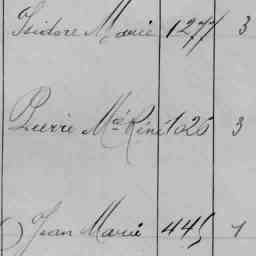 Isidore Marie 1277 3
Pierre Mie René 1025 3
Jean Marie 445 1